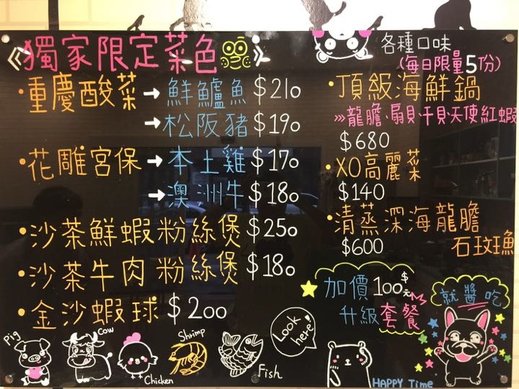 《獨家限定菜色》
·重慶酸菜→鮮鱸魚$210
→松阪豬$190
·花雕宮保→本土雞$170
→澳洲牛$180
·沙茶鮮蝦粉絲煲$250
·沙茶牛肉粉絲煲$180
·金沙蝦球$200
各種口味
(每日限量5份)
·頂級海鮮鍋
»龍膽·扇貝·干貝·天使紅蝦
$680
·XO高麗菜
$140
·清蒸深海龍膽
$600 石斑魚
加價100元
升級套餐
就醬吃
Pig
Cow
Chicken
Shrimp
Fish
Look here!
HAPPY Time